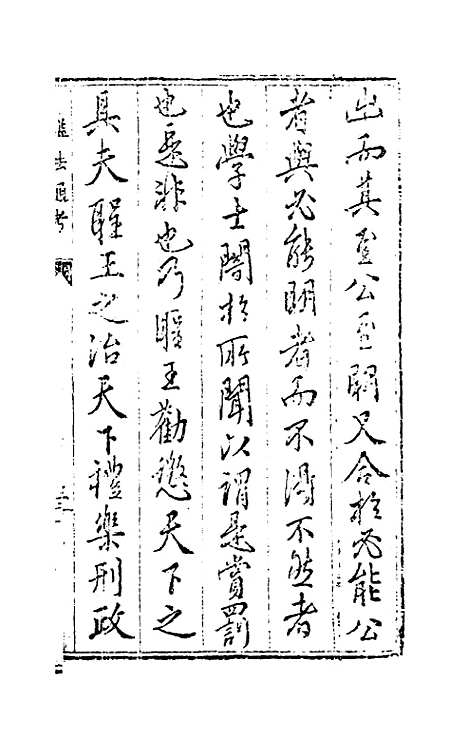 出而其至公至開又合於必能公
者與必能明者而不得不然者
也學士闇於所聞以謂是賞罰
也是非也乃聖王勸懲天下之
具夫聖王之治天下禮樂刑政
謚法通考